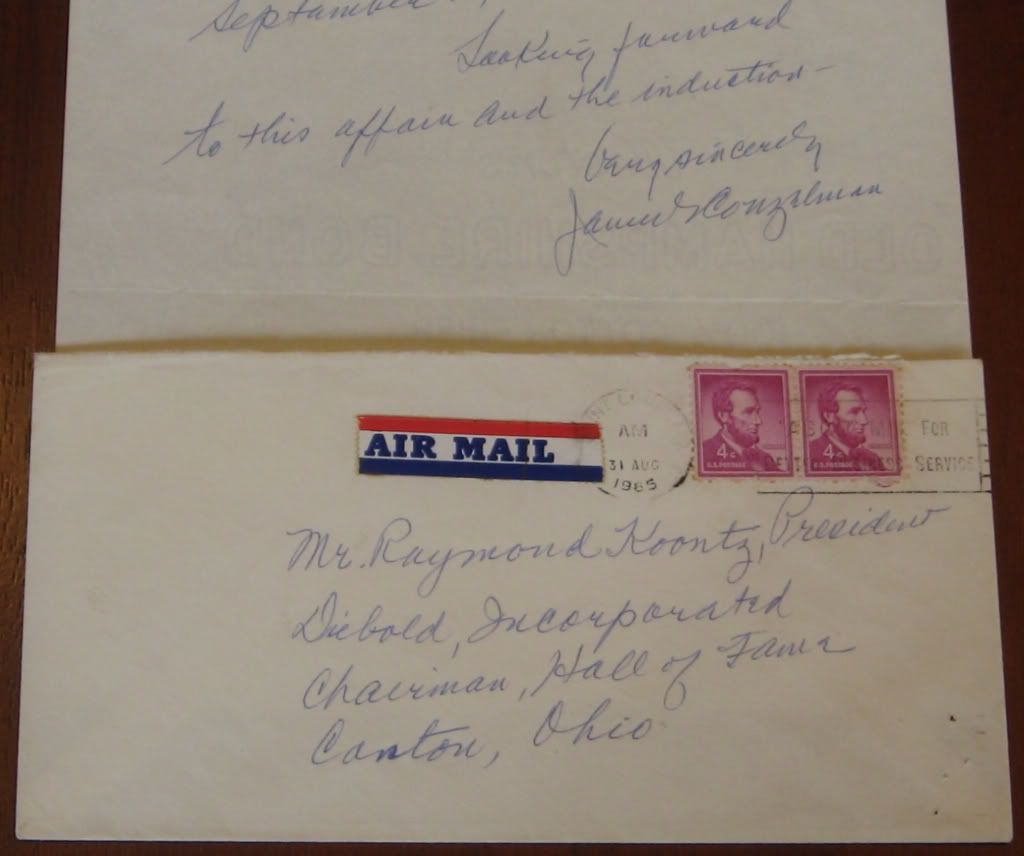 September
Looking forward
to this affair and the induction -
Very sincerely
James Conzelman
OLD HAMPSHIRE BOND
AIR MAIL
AM
31 AUG
1965
4¢
U.S. POSTAGE
4¢
U.S. POSTAGE
FOR
SERVICE
Mr. Raymond Koontz, President
Diebold, Incorporated
Chairman, Hall of Fame
Canton, Ohio